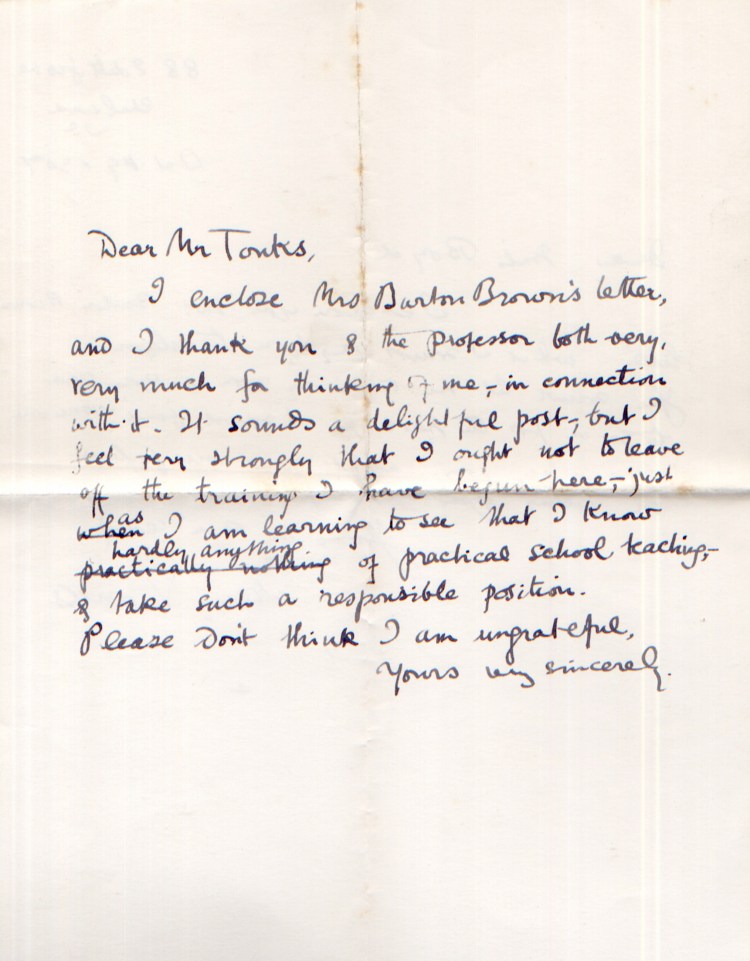 Dear Mr Tonks,
I enclose Mrs Burton Brown's letter,
and I thank you & the professor both very,
very much for thinking of me,- in connection
with it. It sounds a delightful post,- but I
feel very strongly that I ought not to leave
off the training I have begun here,- just
as
when I am learning to see that I know
hardly anything
practically nothing of practical school teaching,-
& take such a responsible position.
Please Don't think I am ungrateful,
Yours very sincerely.